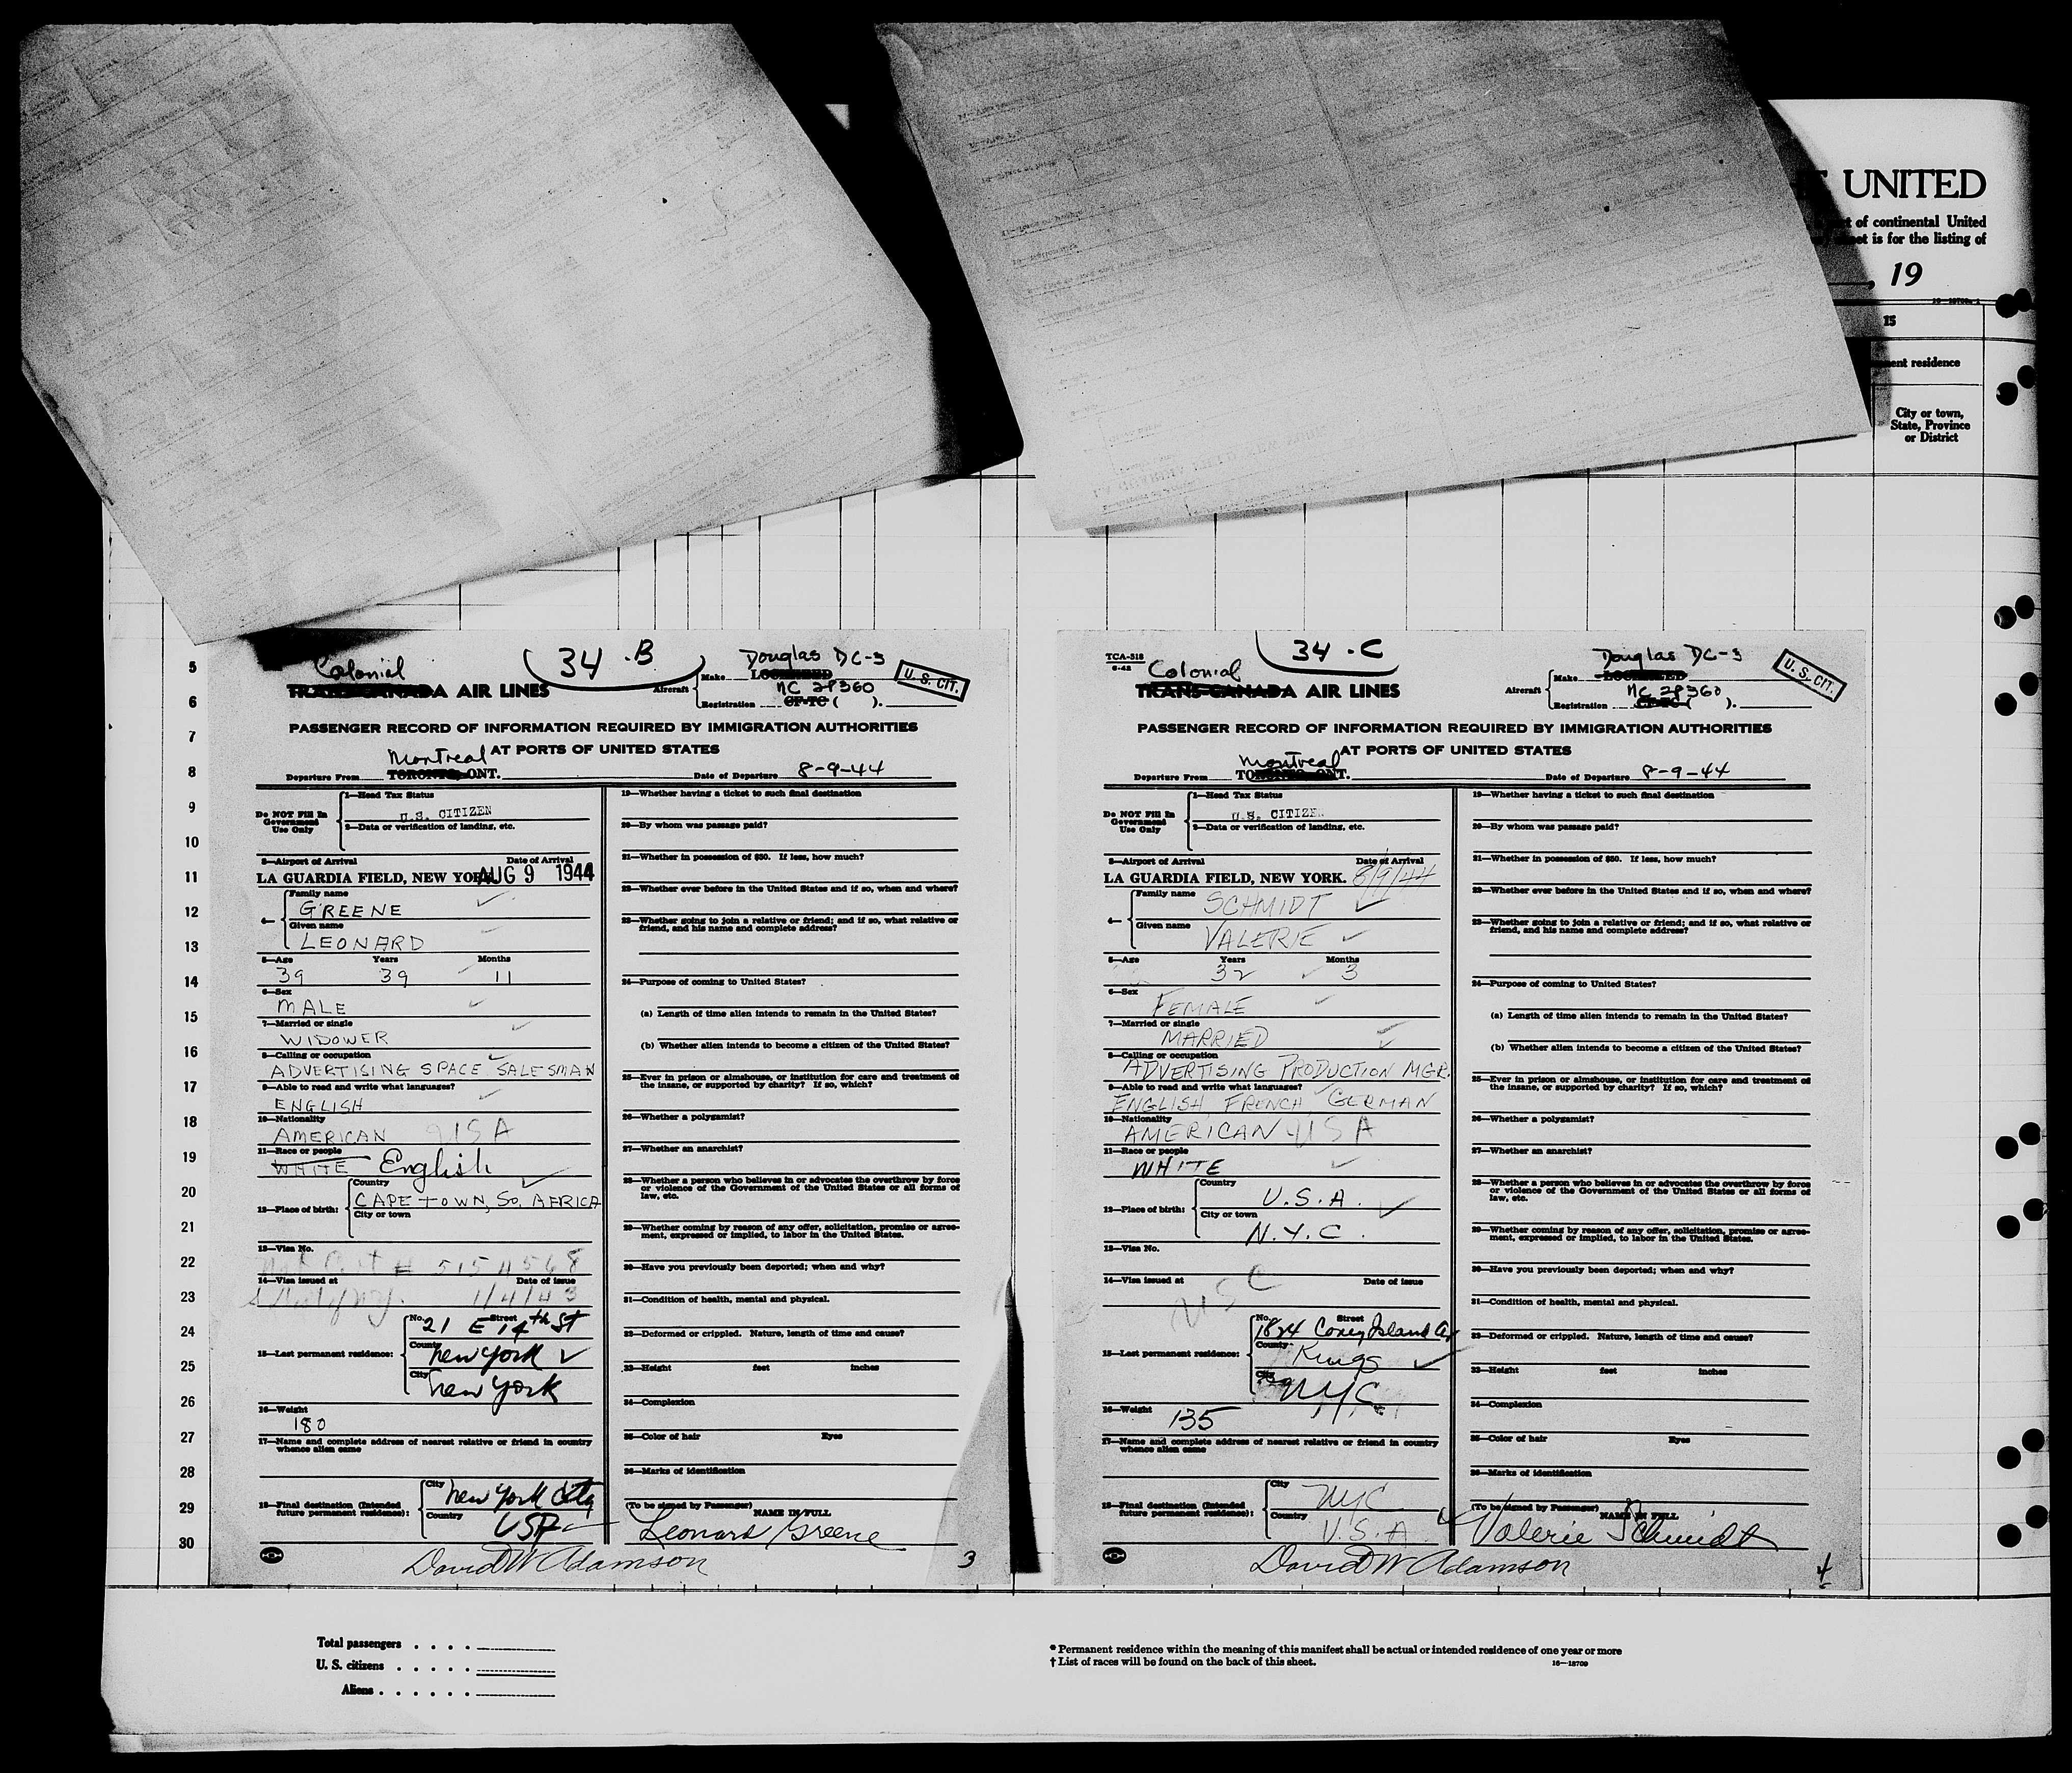 UNITED
of continental United
is for the listing of
, 19
15
residence
City or town,
State, Province
or District
5
6
7
8
9
10
11
12
13
14
15
16
17
18
19
20
21
22
23
24
25
26
27
28
29
30
34 . B
Colonial
TRANS-CANADA AIR LINES
Aircraft
Make
Douglas DC-3
LOCKHEED
Registration
NC 28360
CF-TC ( ).
U. S. CIT.
PASSENGER RECORD OF INFORMATION REQUIRED BY IMMIGRATION AUTHORITIES
AT PORTS OF UNITED STATES
Departure From
Montreal
TORONTO, ONT.
Date of Departure 8-9-44
Do NOT Fill In
Government
Use Only
1—Head Tax Status
U.S. CITIZEN
2—Data or verification of landing, etc.
3—Airport of Arrival Date of Arrival
LA GUARDIA FIELD, NEW YORK. AUG 9 1944
4—
Family name
GREENE
Given name
LEONARD
5—Age Years Months
39 39 11
6—Sex
MALE
7—Married or single
WIDOWER
8—Calling or occupation
ADVERTISING SPACE SALESMAN
9—Able to read and write what languages?
ENGLISH
10—Nationality
AMERICAN USA
11—Race or people
WHITE English
12—Place of birth:
Country
CAPE TOWN, SO. AFRICA
City or town
13—Visa No.
# 5154568
14—Visa issued at Date of issue
1/4/43
15—Last permanent residence:
No. Street
21 E 14th St
County
New York
City
New York
16—Weight
180
17—Name and complete address of nearest relative or friend in country
whence alien came
18—Final destination (Intended
future permanent residence):
City
New York City
Country
USA
19—Whether having a ticket to such final destination
20—By whom was passage paid?
21—Whether in possession of $50. If less, how much?
22—Whether ever before in the United States and if so, when and where?
23—Whether going to join a relative or friend; and if so, what relative or
friend, and his name and complete address?
24—Purpose of coming to United States?
(a) Length of time alien intends to remain in the United States?
(b) Whether alien intends to become a citizen of the United States?
25—Ever in prison or almshouse, or institution for care and treatment of
the insane, or supported by charity? If so, which?
26—Whether a polygamist?
27—Whether an anarchist?
28—Whether a person who believes in or advocates the overthrow by force
or violence of the Government of the United States or all forms of
law, etc.
29—Whether coming by reason of any offer, solicitation, promise or agree-
ment, expressed or implied, to labor in the United States.
30—Have you previously been deported; when and why?
31—Condition of health, mental and physical.
32—Deformed or crippled. Nature, length of time and cause?
33—Height feet inches
34—Complexion
35—Color of hair Eyes
36—Marks of identification
(To be signed by Passenger)
NAME IN FULL
Leonard Greene
David W Adamson
3
TCA-518
6-42
34 . C
Colonial
TRANS-CANADA AIR LINES
Aircraft
Make
Douglas DC-3
LOCKHEED
Registration
NC 28360
CF-TC ( ).
U. S. CIT.
PASSENGER RECORD OF INFORMATION REQUIRED BY IMMIGRATION AUTHORITIES
AT PORTS OF UNITED STATES
Departure From
Montreal
TORONTO, ONT.
Date of Departure 8-9-44
Do NOT Fill In
Government
Use Only
1—Head Tax Status
U.S. CITIZEN
2—Data or verification of landing, etc.
3—Airport of Arrival Date of Arrival
LA GUARDIA FIELD, NEW YORK. 8/9/44
4—
Family name
SCHMIDT
Given name
VALERIE
5—Age Years Months
32 3
6—Sex
FEMALE
7—Married or single
MARRIED
8—Calling or occupation
ADVERTISING PRODUCTION MGR.
9—Able to read and write what languages?
ENGLISH, FRENCH, GERMAN
10—Nationality
AMERICAN USA
11—Race or people
WHITE
12—Place of birth:
Country
U.S.A.
City or town
N.Y.C.
13—Visa No.
14—Visa issued at Date of issue
USC
15—Last permanent residence:
No. Street
1824 Coney Island Av
County
Kings
City
NYC
16—Weight
135
17—Name and complete address of nearest relative or friend in country
whence alien came
18—Final destination (Intended
future permanent residence):
City
NYC
Country
U.S.A.
19—Whether having a ticket to such final destination
20—By whom was passage paid?
21—Whether in possession of $50. If less, how much?
22—Whether ever before in the United States and if so, when and where?
23—Whether going to join a relative or friend; and if so, what relative or
friend, and his name and complete address?
24—Purpose of coming to United States?
(a) Length of time alien intends to remain in the United States?
(b) Whether alien intends to become a citizen of the United States?
25—Ever in prison or almshouse, or institution for care and treatment of
the insane, or supported by charity? If so, which?
26—Whether a polygamist?
27—Whether an anarchist?
28—Whether a person who believes in or advocates the overthrow by force
or violence of the Government of the United States or all forms of
law, etc.
29—Whether coming by reason of any offer, solicitation, promise or agree-
ment, expressed or implied, to labor in the United States.
30—Have you previously been deported; when and why?
31—Condition of health, mental and physical.
32—Deformed or crippled. Nature, length of time and cause?
33—Height feet inches
34—Complexion
35—Color of hair Eyes
36—Marks of identification
(To be signed by Passenger)
NAME IN FULL
Valerie Schmidt
David W Adamson
4
Total passengers . . . .
U. S. citizens . . . . .
Aliens . . . . . .
* Permanent residence within the meaning of this manifest shall be actual or intended residence of one year or more
† List of races will be found on the back of this sheet. 16—18709